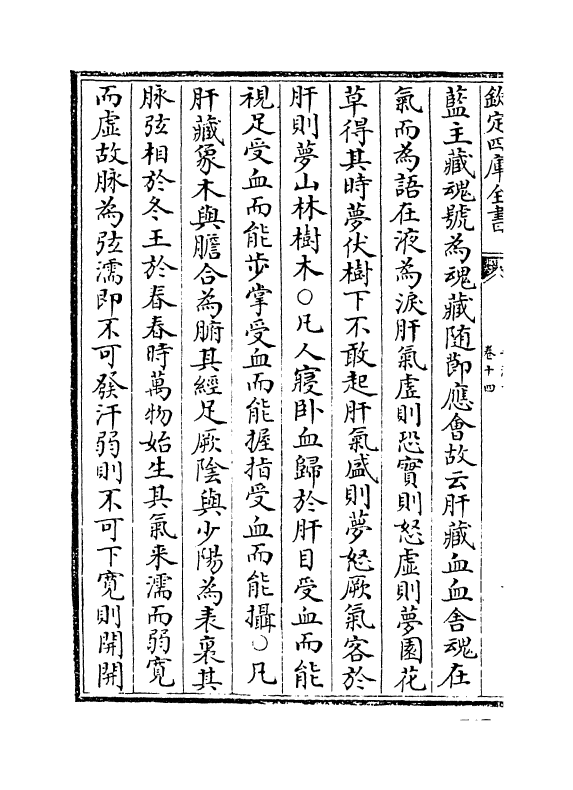 欽定四庫全書
卷十四
藍主藏魂號為魂藏随節應會故云肝藏血血舎魂在
氣而為語在液為淚肝氣虚則恐實則怒虚則夢園花
草得其時夢伏樹下不敢起肝氣盛則夢怒厥氣客於
肝則夢山林樹木○凡人寢卧血歸於肝目受血而能
視足受血而能步掌受血而能握指受血而能攝○凡
肝藏象木與膽合為腑其經足厥隂與少陽為表裏其
脉弦相於冬王於春春時萬物始生其氣来濡而弱寛
而虚故脉為弦濡即不可發汗弱則不可下寛則開開